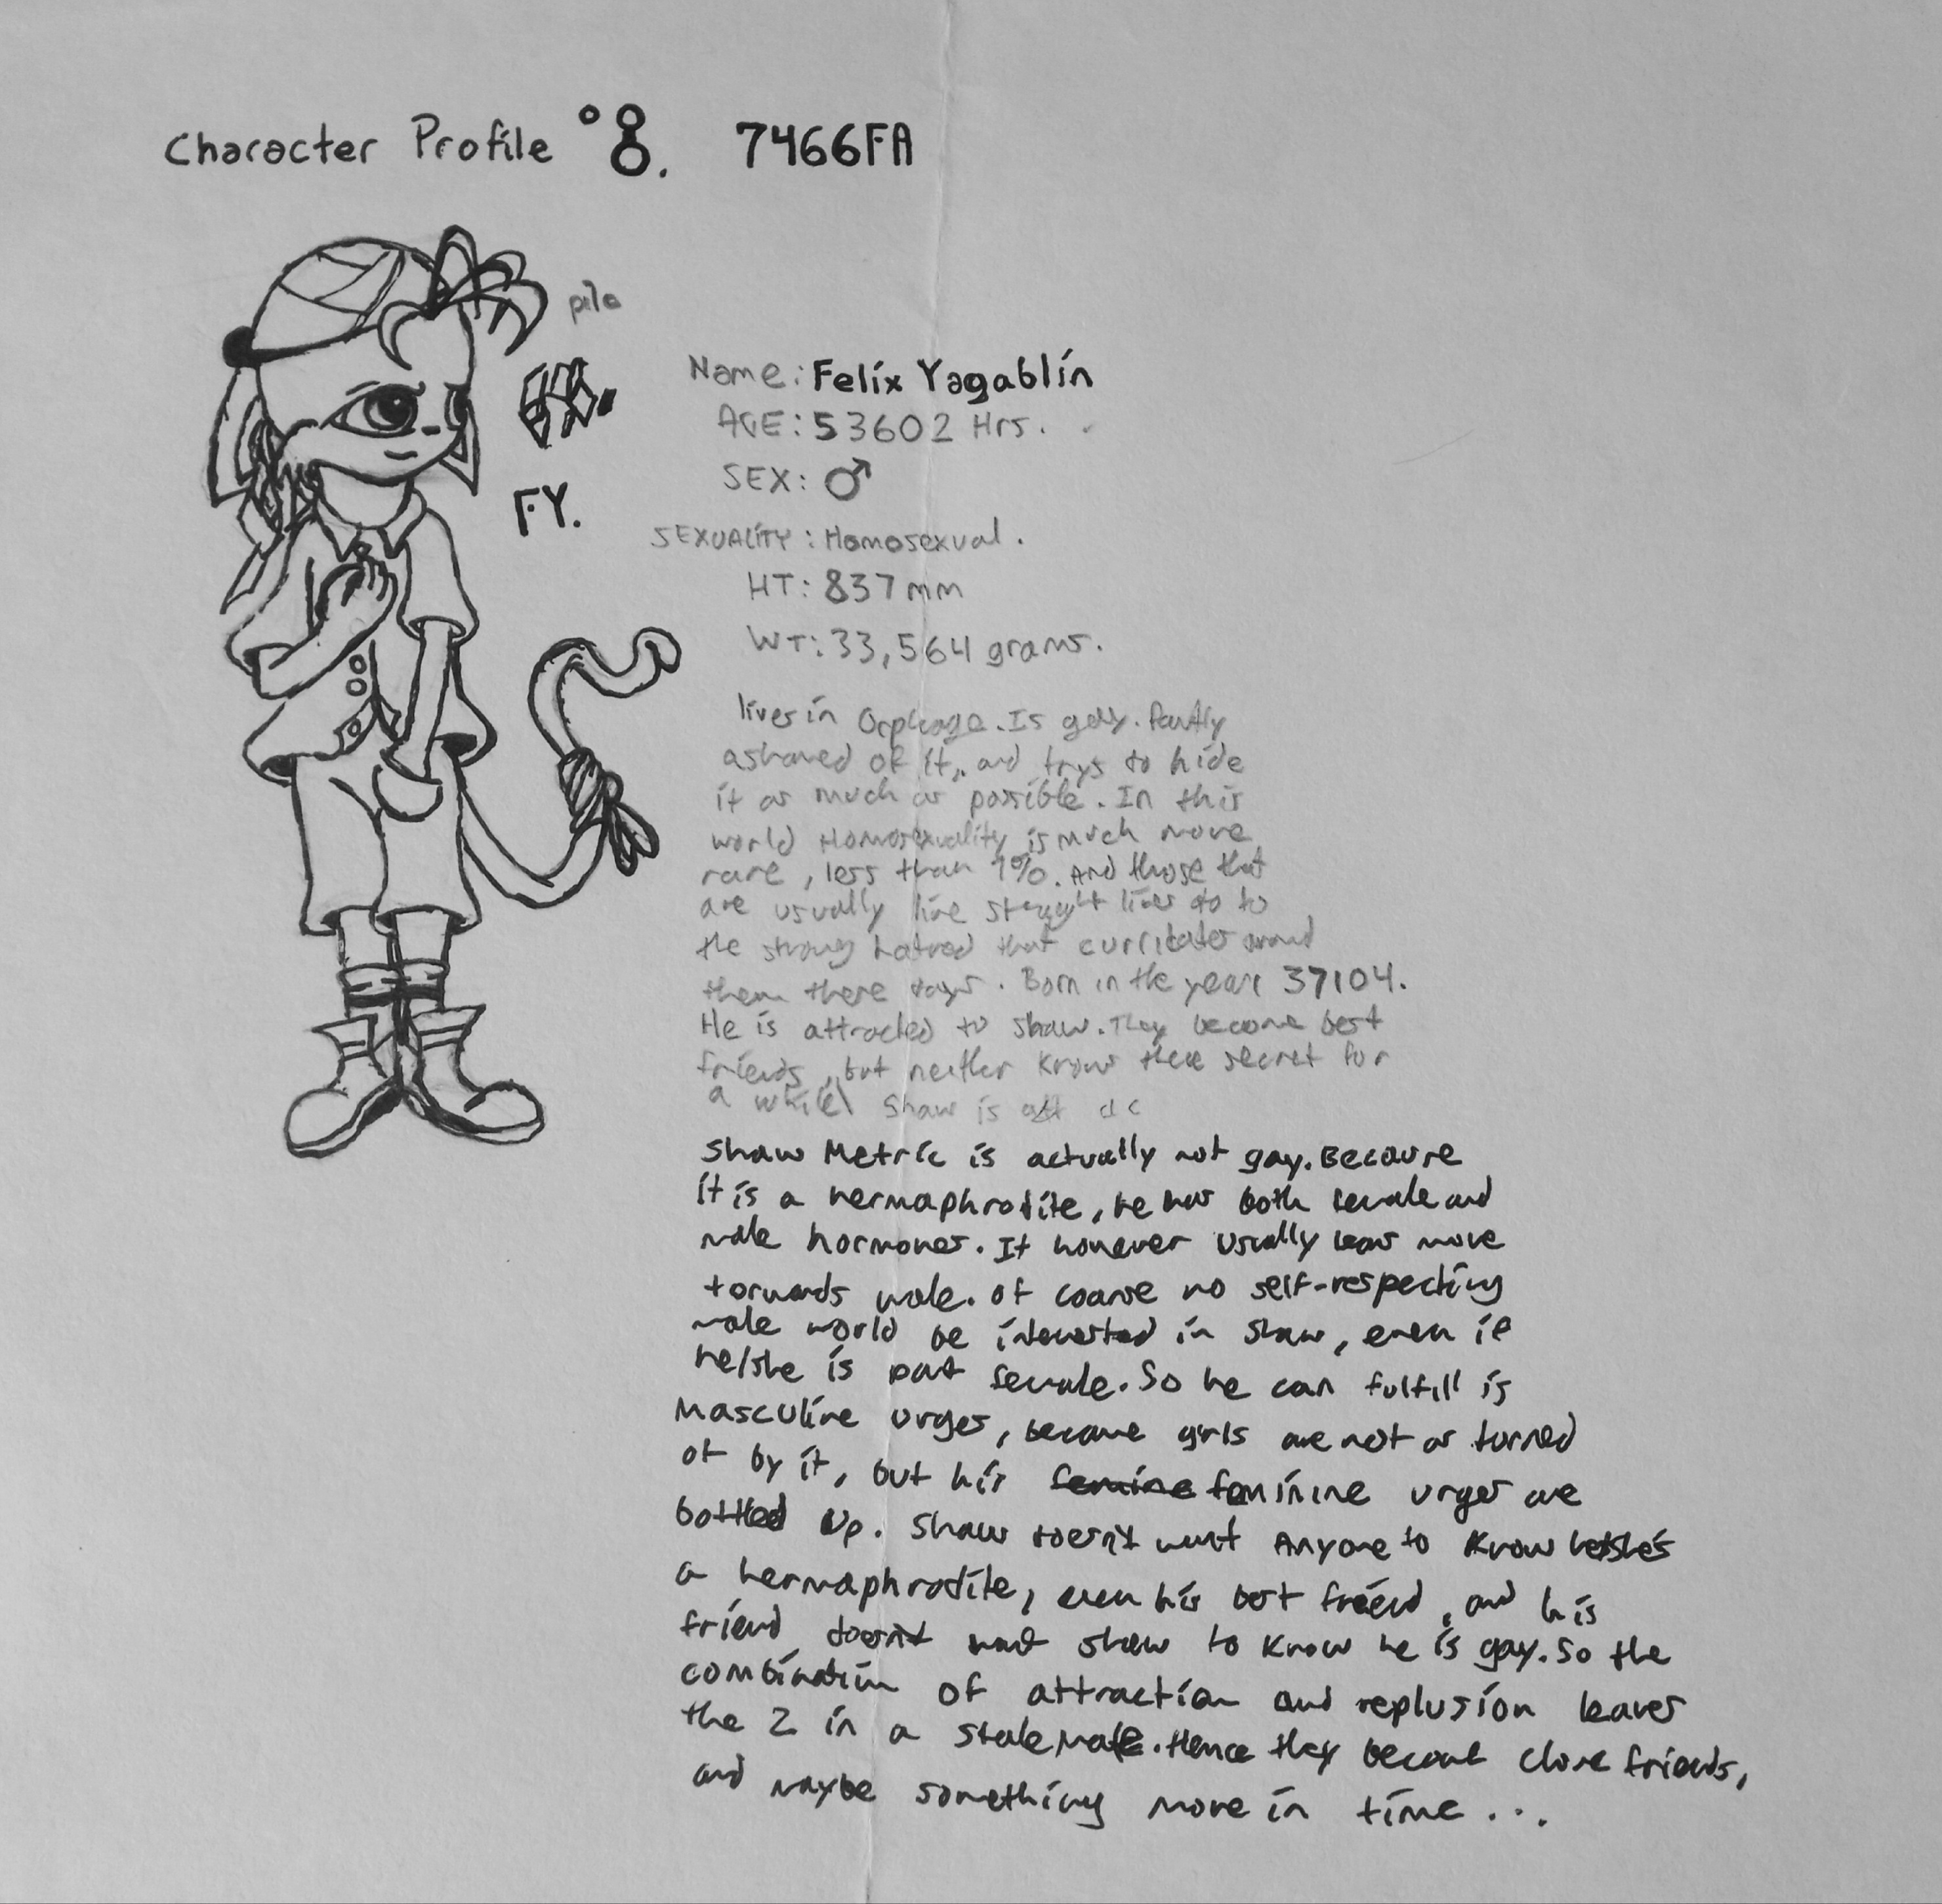 Character Profile °8. 7466FA
pilo
Name: Felix Yagablin
AGE: 53602 Hrs.
FY.
SEX: ♂
SEXUALITY: Homosexual.
HT: 837mm
WT: 33,564 grams.
lives in Orpheage. Is gay. Partly
ashamed of it, and trys to hide
it as much as possible. In this
world Homosexuality is much more
rare, less than 1%. And those that
are usually live straight lives do to
the strong hatred that curriclates around
them there days. Born in the year 37104.
He is attracted to Shaw. They become best
friends, but neither know there secret for
a while Shaw is att
Shaw Metric is actually not gay. Because
it is a hermaphrodite, he has both female and
male hormones. It however usually leans more
torwards male. Of coarse no self-respecting
male world be interested in Shaw, even if
he/she is part female. So he can fulfill is
masculine urges, because girls are not as turned
of by it, but his femine feminine urges are
bottled up. Shaw doesn't want Anyone to know he/she's
a hermaphrodite, even his best friend, and his
friend doesn't want Shaw to know he is gay. So the
combination of attraction and replusion leaves
the 2 in a stalemate. Hence they become close friends,
and maybe something more in time...